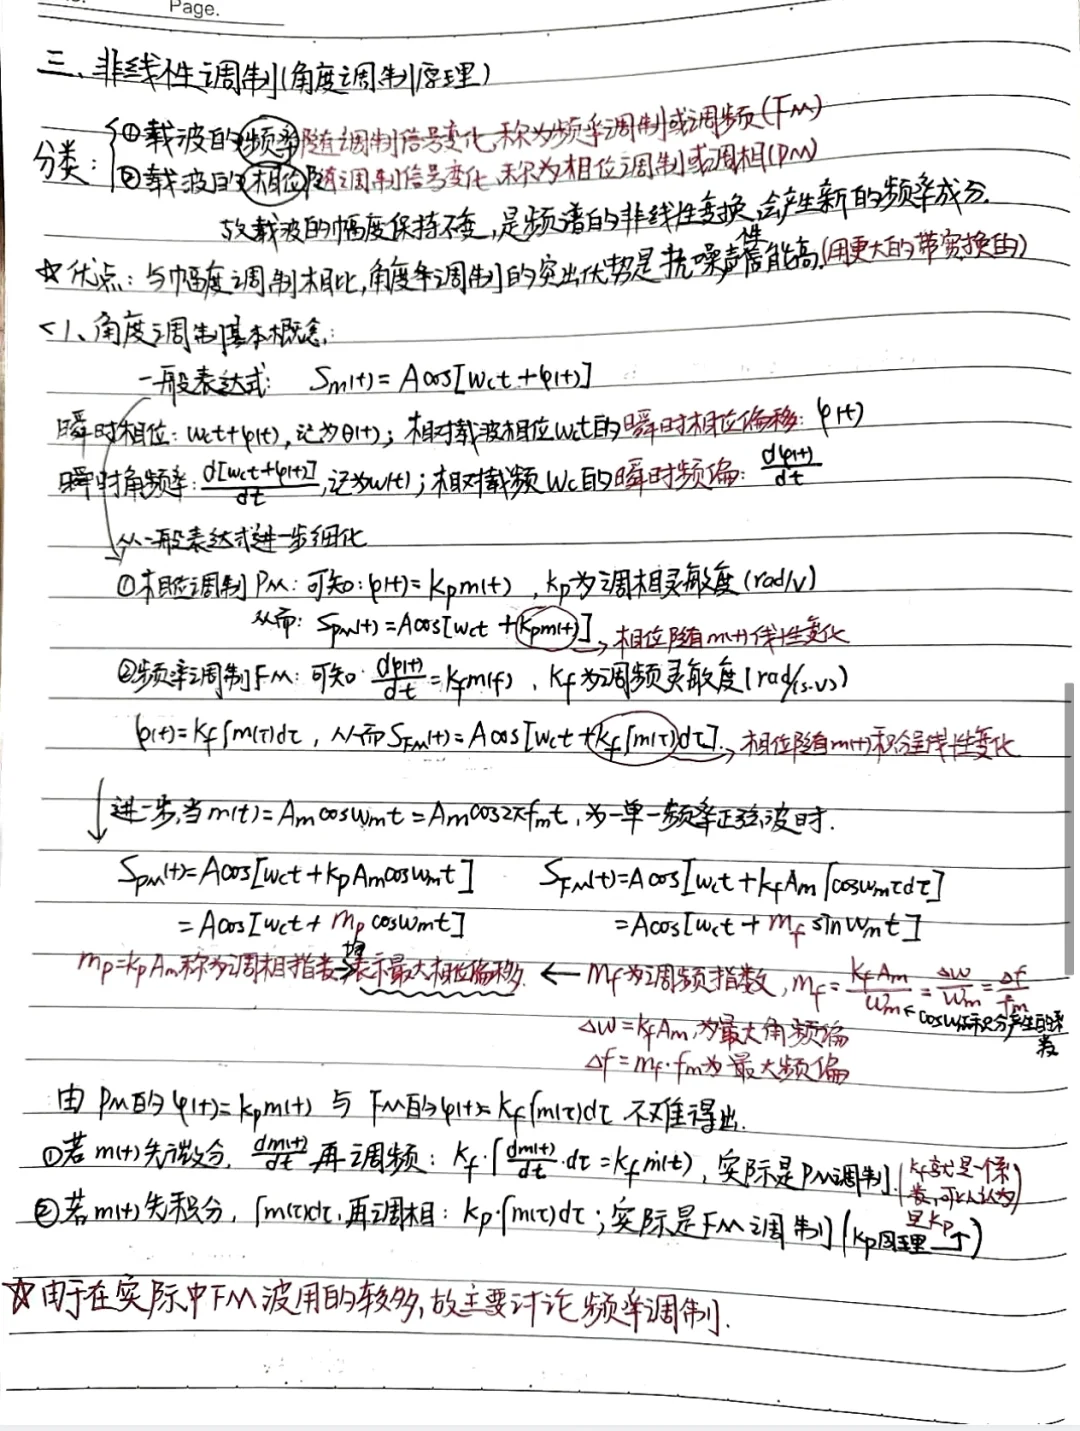 Page.
三、非线性调制(角度调制原理)
分类：
①载波的频率随调制信号变化,称为频率调制或调频(FM)
②载波的相位随调制信号变化,称为相位调制或调相(PM)
故载波的幅度保持不变,是频谱的非线性变换,会产生新的频率成分.
☆优点：与幅度调制相比,角度调制的突出优势是抗噪声性能高.(用更大的带宽换的)
<1、角度调制基本概念：
一般表达式: Sm(t)=Acos[wct+φ(t)]
瞬时相位: wct+φ(t),记为θ(t)；相对载波相位wct的瞬时相位偏移: φ(t)
瞬时角频率: d[wct+φ(t)]/dt,记为w(t)；相对载频wc的瞬时频偏: dφ(t)/dt
从一般表达式进一步细化
①相位调制PM: 可知:φ(t)=kpm(t), kp为调相灵敏度(rad/v)
从而: SPM(t)=Acos[wct+kpm(t)] → 相位随m(t)线性变化
②频率调制FM: 可知: dφ(t)/dt=kfm(t), kf为调频灵敏度(rad/(s·v))
φ(t)=kf∫m(τ)dτ, 从而SFM(t)=Acos[wct+kf∫m(τ)dτ]. → 相位随m(t)积分呈线性变化
↓进一步,当m(t)=Amcoswmt=Amcos2πfmt,为一单一频率正弦波时.
SPM(t)=Acos[wct+kpAmcoswmt] SFM(t)=Acos[wct+kfAm∫coswmτdτ]
=Acos[wct+mpcoswmt] =Acos[wct+mf sinwmt]
mp=kpAm称为调相指数→均表示最大相位偏移. ← mf为调频指数, mf=kfAm/wm=Δw/wm=Δf/fm
Δw=kfAm,为最大角频偏
Δf=mf·fm为最大频偏
由PM的φ(t)=kpm(t)与FM的φ(t)=kf∫m(τ)dτ不难得出.
①若m(t)先微分, dm(t)/dt 再调频: kf·∫dm(t)/dt·dτ=kfm(t), 实际是PM调制.(kf就是一个系数,可以认为是kp)
②若m(t)先积分, ∫m(τ)dτ,再调相: kp·∫m(τ)dτ；实际是FM调制(kp同理↑)
☆由于在实际中FM波用的较多,故主要讨论频率调制.